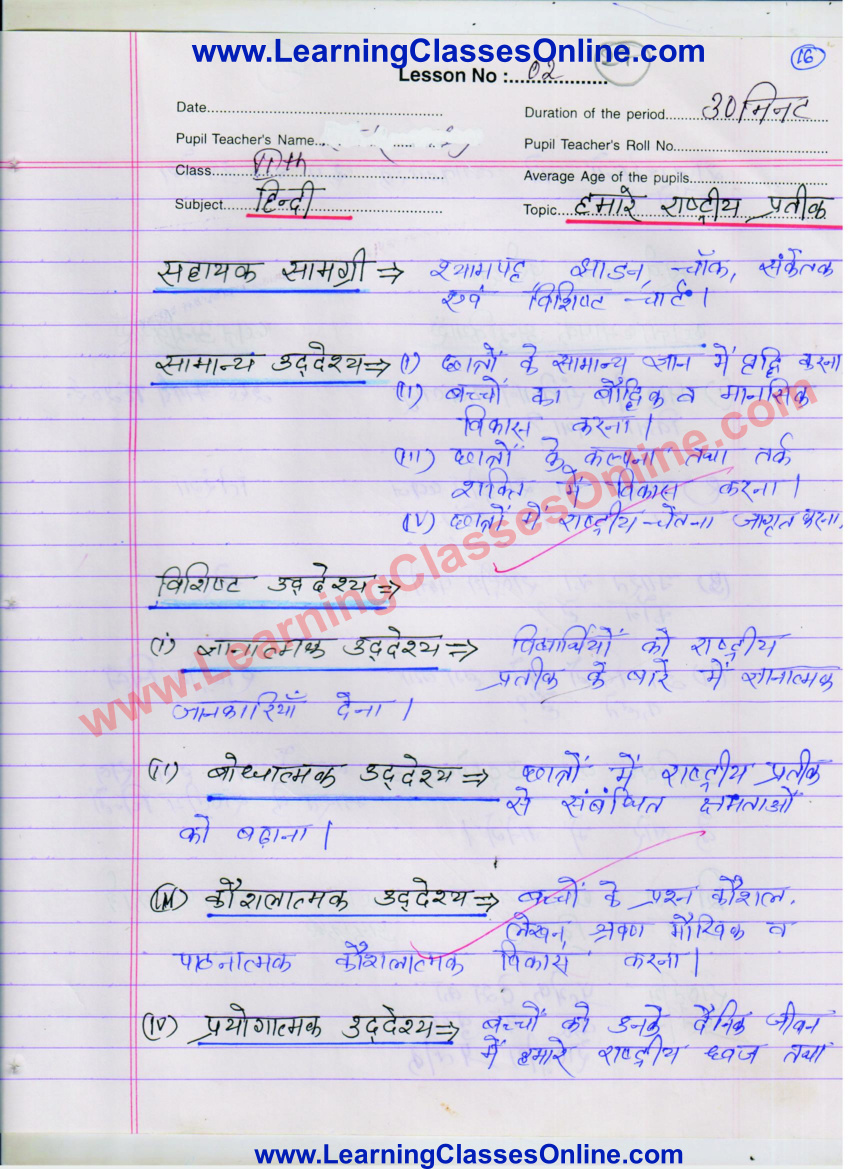 www.LearningClassesOnline.com
16
Lesson No :.....02..............
Date.................................................. Duration of the period....30 मिनट
Pupil Teacher's Name.. Pupil Teacher's Roll No.....................................
Class..........VIIth............ Average Age of the pupils.................................
Subject........हिन्दी............ Topic...हमारे राष्ट्रीय प्रतीक
सहायक सामग्री ⇒ श्यामपट्ट झाडन, चॉक, संकेतक
एवं विशिष्ट चार्ट।
सामान्य उद्देश्य ⇒ (i) छात्रों के सामान्य ज्ञान में वृद्धि करना
(ii) बच्चों का बौद्धिक व मानसिक
विकास करना।
(iii) छात्रों के कल्पना तथा तर्क
शक्ति में विकास करना।
(iv) छात्रों में राष्ट्रीय चेतना जागृत करना.
www.LearningClassesOnline.com
विशिष्ट उद्देश्य ⇒
(i) ज्ञानात्मक उद्देश्य ⇒ विद्यार्थियों को राष्ट्रीय
प्रतीक के बारे में ज्ञानात्मक
जानकारियाँ देना।
(ii) बोधात्मक उद्देश्य ⇒ छात्रों में राष्ट्रीय प्रतीक
से संबंधित क्षमताओं
को बढ़ाना।
(iii) कौशलात्मक उद्देश्य ⇒ बच्चों के प्रश्न कौशल,
लेखन, श्रवण मौखिक व
पाठनात्मक कौशलात्मक विकास करना।
(iv) प्रयोगात्मक उद्देश्य ⇒ बच्चों को उनके दैनिक जीवन
में हमारे राष्ट्रीय ध्वज तथा
www.LearningClassesOnline.com